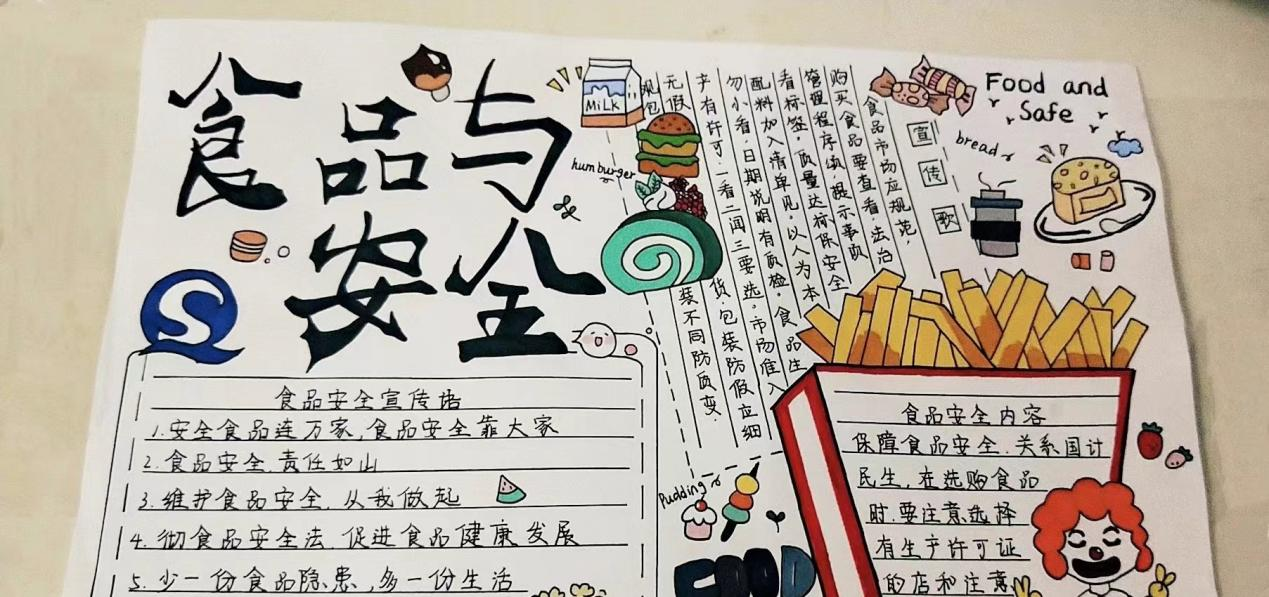 食品与
安全
MiLK
humburger
S
食品安全宣传语
1.安全食品连万家,食品安全靠大家
2.食品安全.责任如山
3.维护食品安全.从我做起
4.彻食品安全法.促进食品健康发展
5.少一份食品隐患,多一份生活
宣传歌
食品市场应规范,
购买食品要查看,法治
管理程序填,提示事项
看标签,质量达标保安全
配料加入清单见,以人为本
勿小看,日期说明有质检,食品生
产有许可,一看二闻三要选。市场准入
无假货.包装防假应细
观包装不同防质变.
Food and
Safe
bread
Pudding
FOOD
食品安全内容
保障食品安全.关系国计
民生,在选购食品
时.要注意选择
有生产许可证
的店和注意